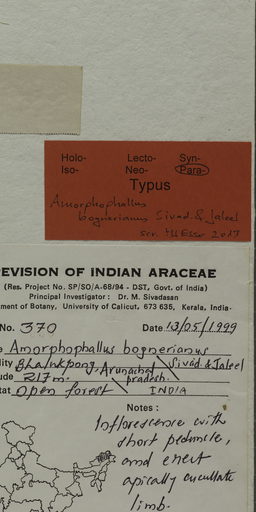 Holo- Lecto- Syn-
Iso- Neo- Para-
Typus
Amorphophallus
bognerianus Sivad. & Jaleel
2017
EVISION OF INDIAN ARACEAE
(Res. Project No. SP/SO/A-68/94 - DST, Govt. of India)
Principal Investigator : Dr. M. Sivadasan
ment of Botany, University of Calicut, 673 635, Kerala, India-
No. 370 Date 13/05/1999
e Amorphophallus bognerianus
lity Bhalukpong, Arunachal Sivad. & Jaleel
ude 217 m. pradesh.
tat Open forest INDIA
Notes :
Inflorescence with
short peduncle,
and erect
apically cucullate
limb.